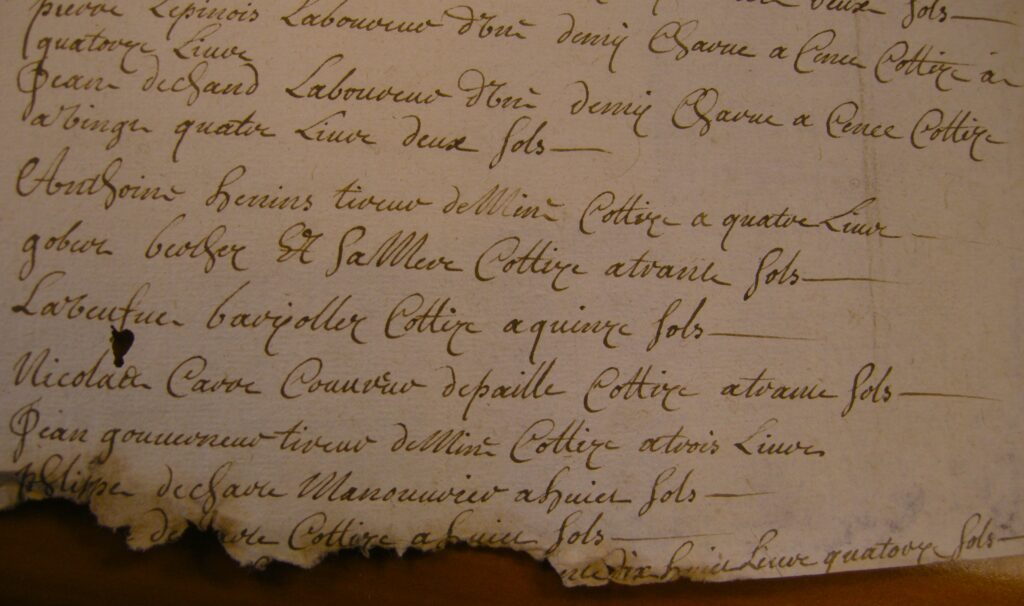 deux sols
pierre Lepinois Laboureur d'vne demy Charue a Cence Cottize a
quatorze Liure
Jean dechand Laboureur d'vne demy Charue a Cence Cottize
a vingt quatre Liure deux sols
Anthoine henins tireur de Mine Cottize a quatre Liure
et sa Mere Cottize a trante sols
La veufue Cottize a quinze sols
Nicolas Carre Couureur de paille Cottize a trante sols
Jean gouuerneur tireur de Mine Cottize a trois Liure
philippe decharle Manouurier a huict sols
Cottize a huict sols
dix huict Liure quatorze sols